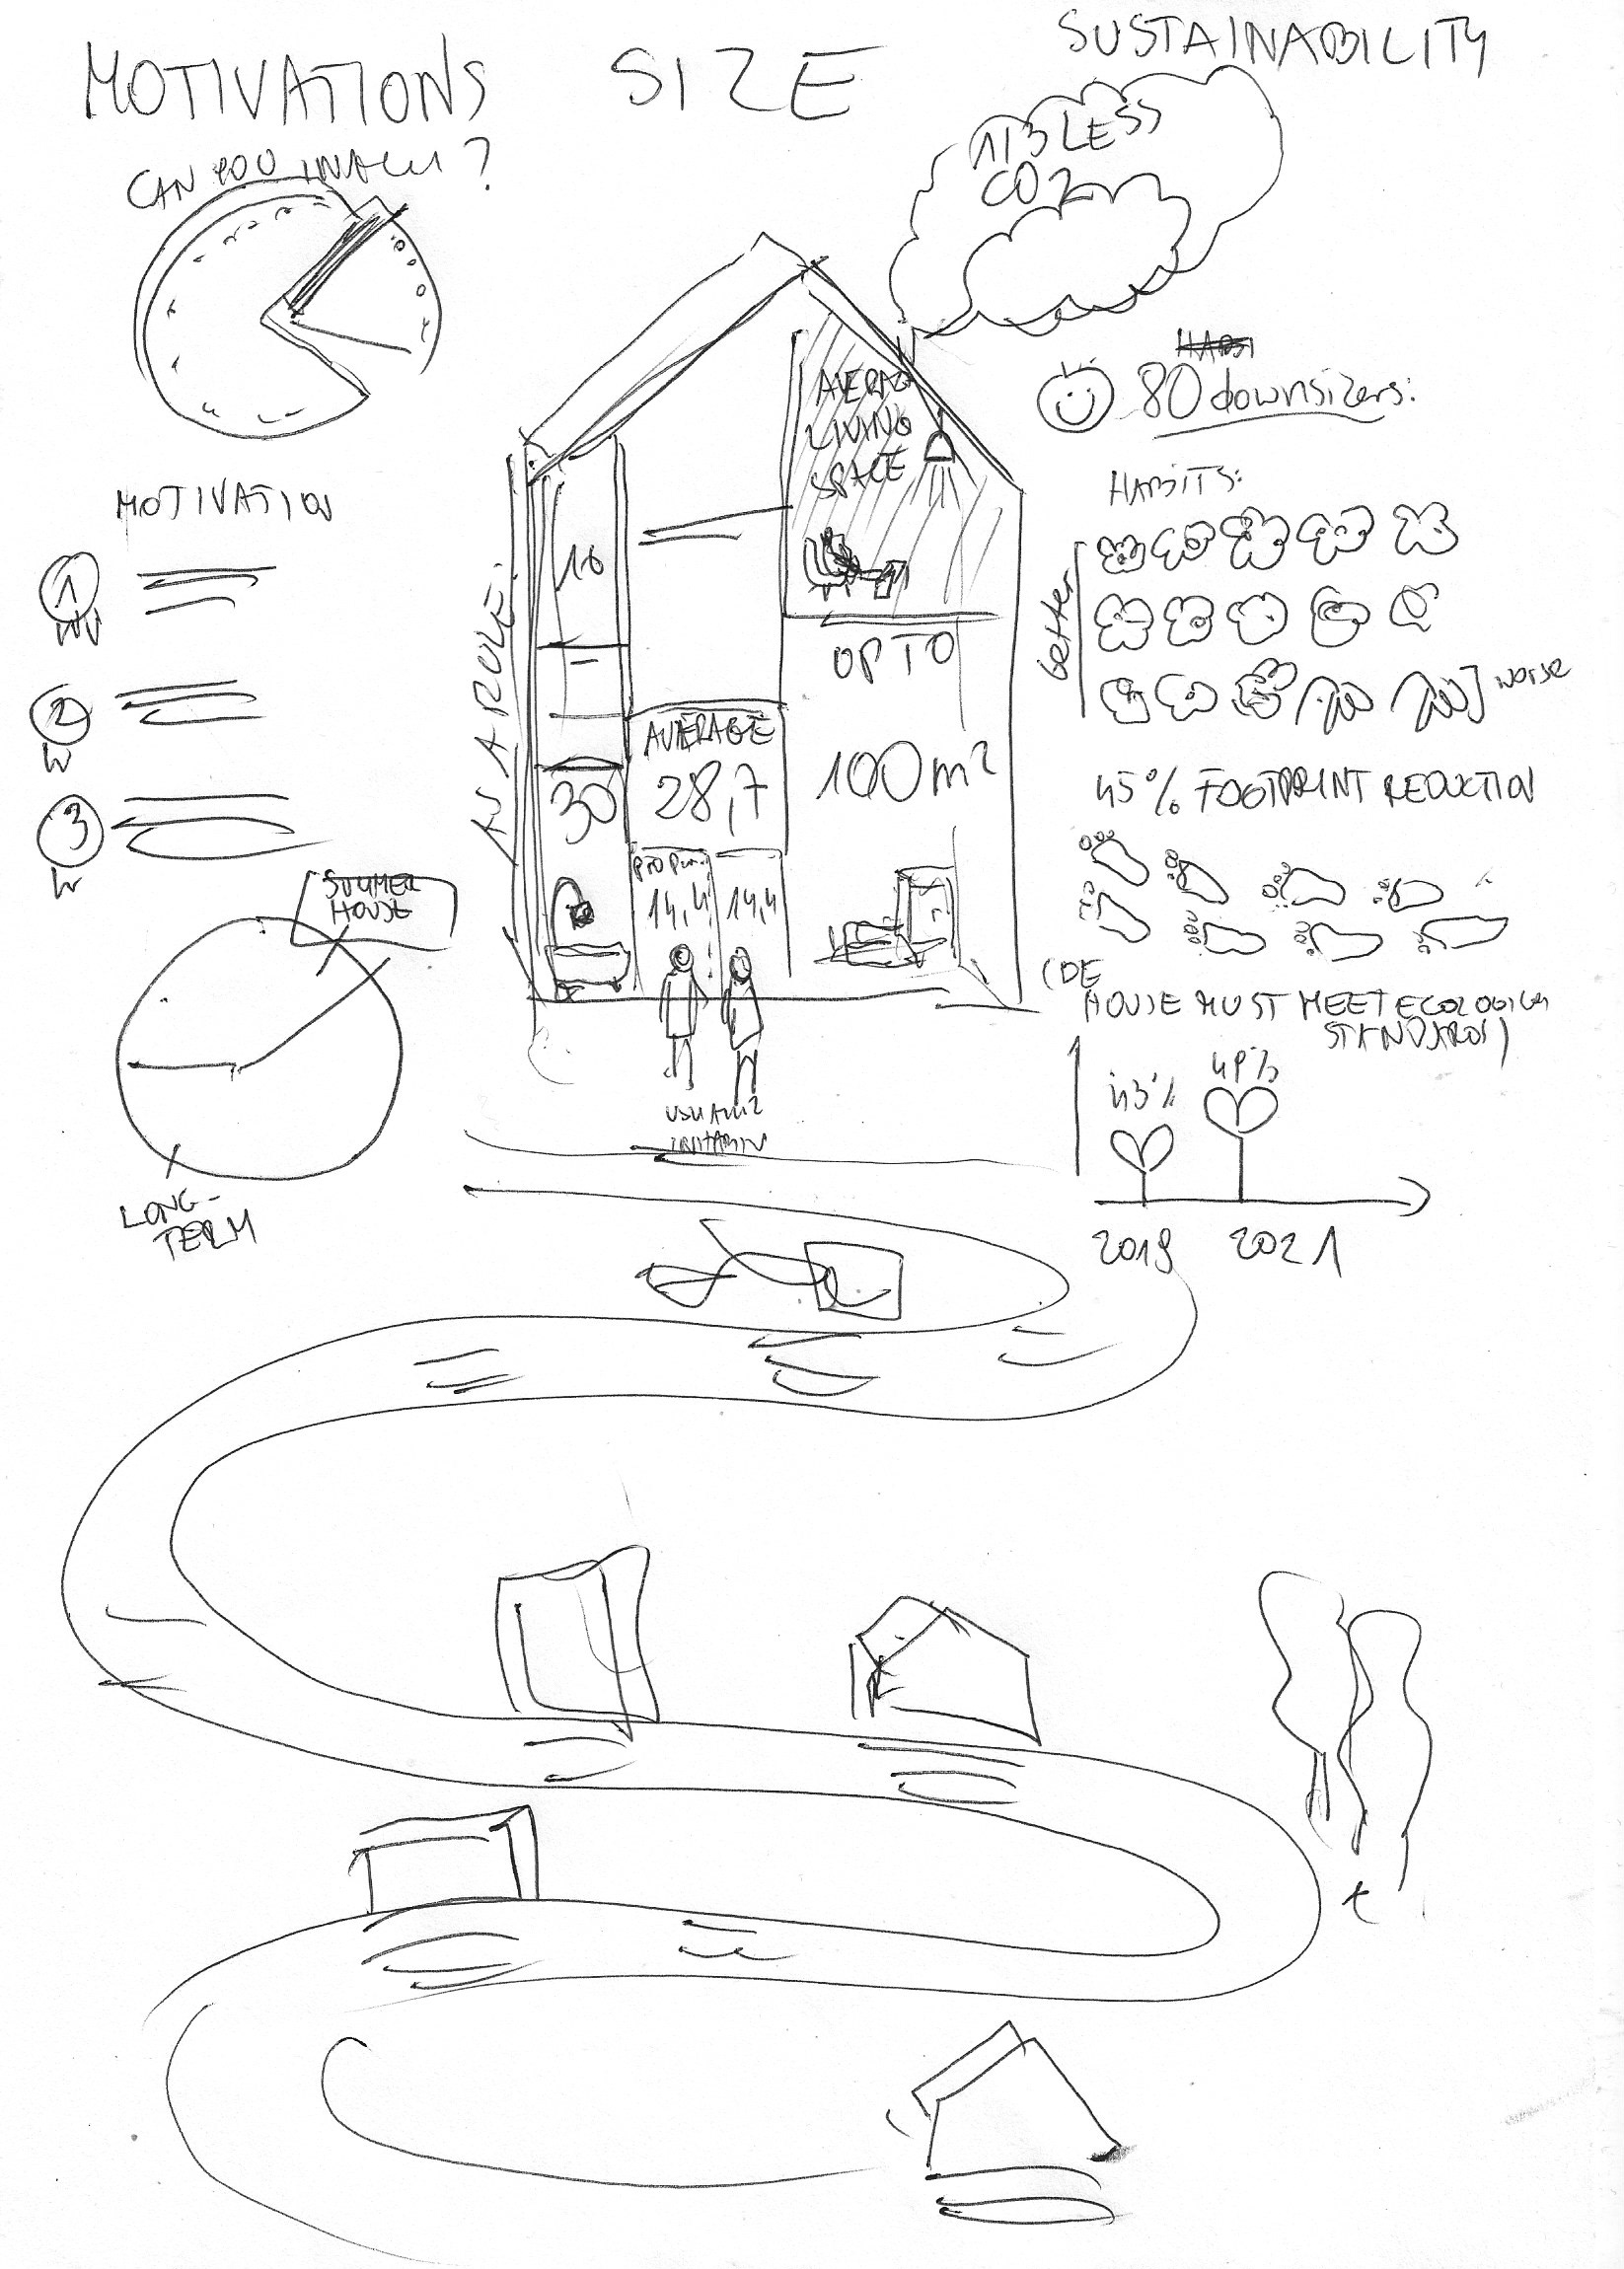 MOTIVATIONS
SIZE
SUSTAINABILITY
CAN YOU
?
1/3 LESS
CO2
80 downsizers:
AVERAG
LIVING
SPACE
MOTIVATION
1
2
3
AS A RULE:
16
30
AVERAGE
28,7
14,4
14,4
UP TO
100 m²
HABITS:
better
worse
45% FOOTPRINT REDUCTION
(DE
HOUSE MUST MEET ECOLOGICAL
STANDARDS)
43%
49%
2019
2021
SUMMER
HOUSE
LONG-
TERM